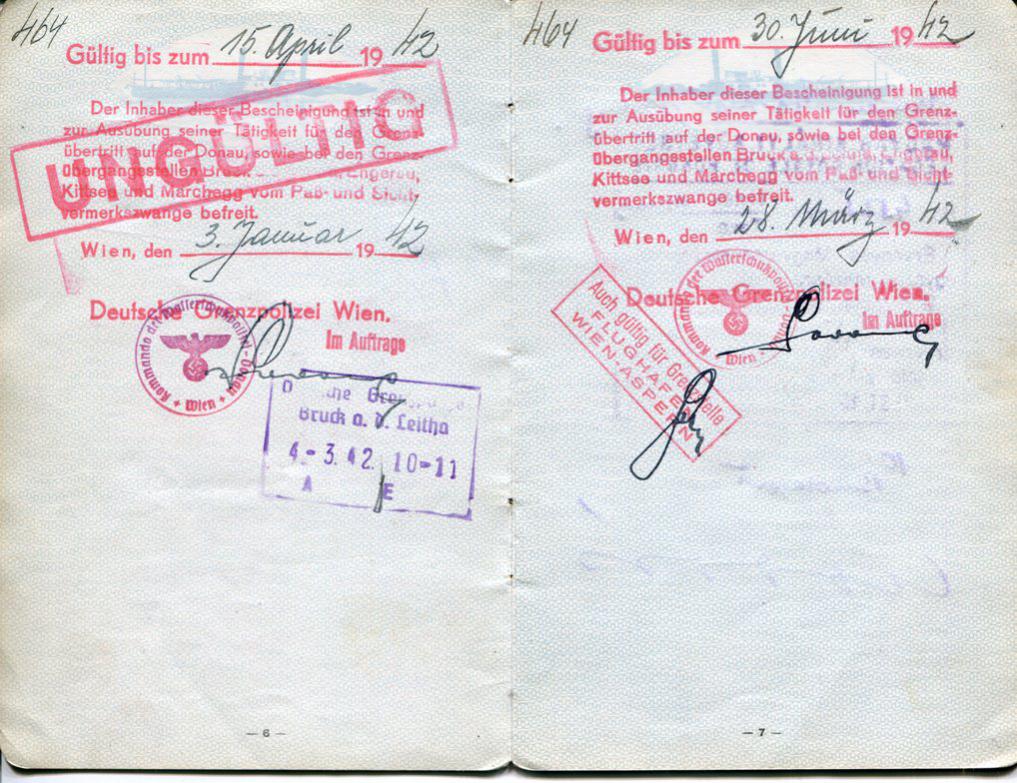 464
Gültig bis zum 15. April 19 42
UNGÜLTIG
Der Inhaber dieser Bescheinigung ist in und
zur Ausübung seiner Tätigkeit für den Grenz-
übertritt auf der Donau, sowie bei den Grenz-
übergangsstellen Bruck Engerau,
Kittsee und Marchegg vom Paß- und Sicht-
vermerkszwange befreit.
Wien, den 3. Januar 19 42
Deutsche Grenzpolizei Wien.
Im Auftrage
Kommando der Wasserschutzpolizei-Donau
Wien
Bruck a. d. Leitha
4-3.42. 10-11
A E
- 6 -
464
Gültig bis zum 30. Juni 19 42
Der Inhaber dieser Bescheinigung ist in und
zur Ausübung seiner Tätigkeit für den Grenz-
übertritt auf der Donau, sowie bei den Grenz-
übergangsstellen Bruck a. d. Leitha, Engerau,
Kittsee und Marchegg vom Paß- und Sicht-
vermerkszwange befreit.
Wien, den 28. März 19 42
Deutsche Grenzpolizei Wien.
Im Auftrage
Kommando der Wasserschutzpolizei-Donau
Wien
Auch gültig für Grenzstelle
FLUGHAFEN
WIEN-ASPERN
- 7 -